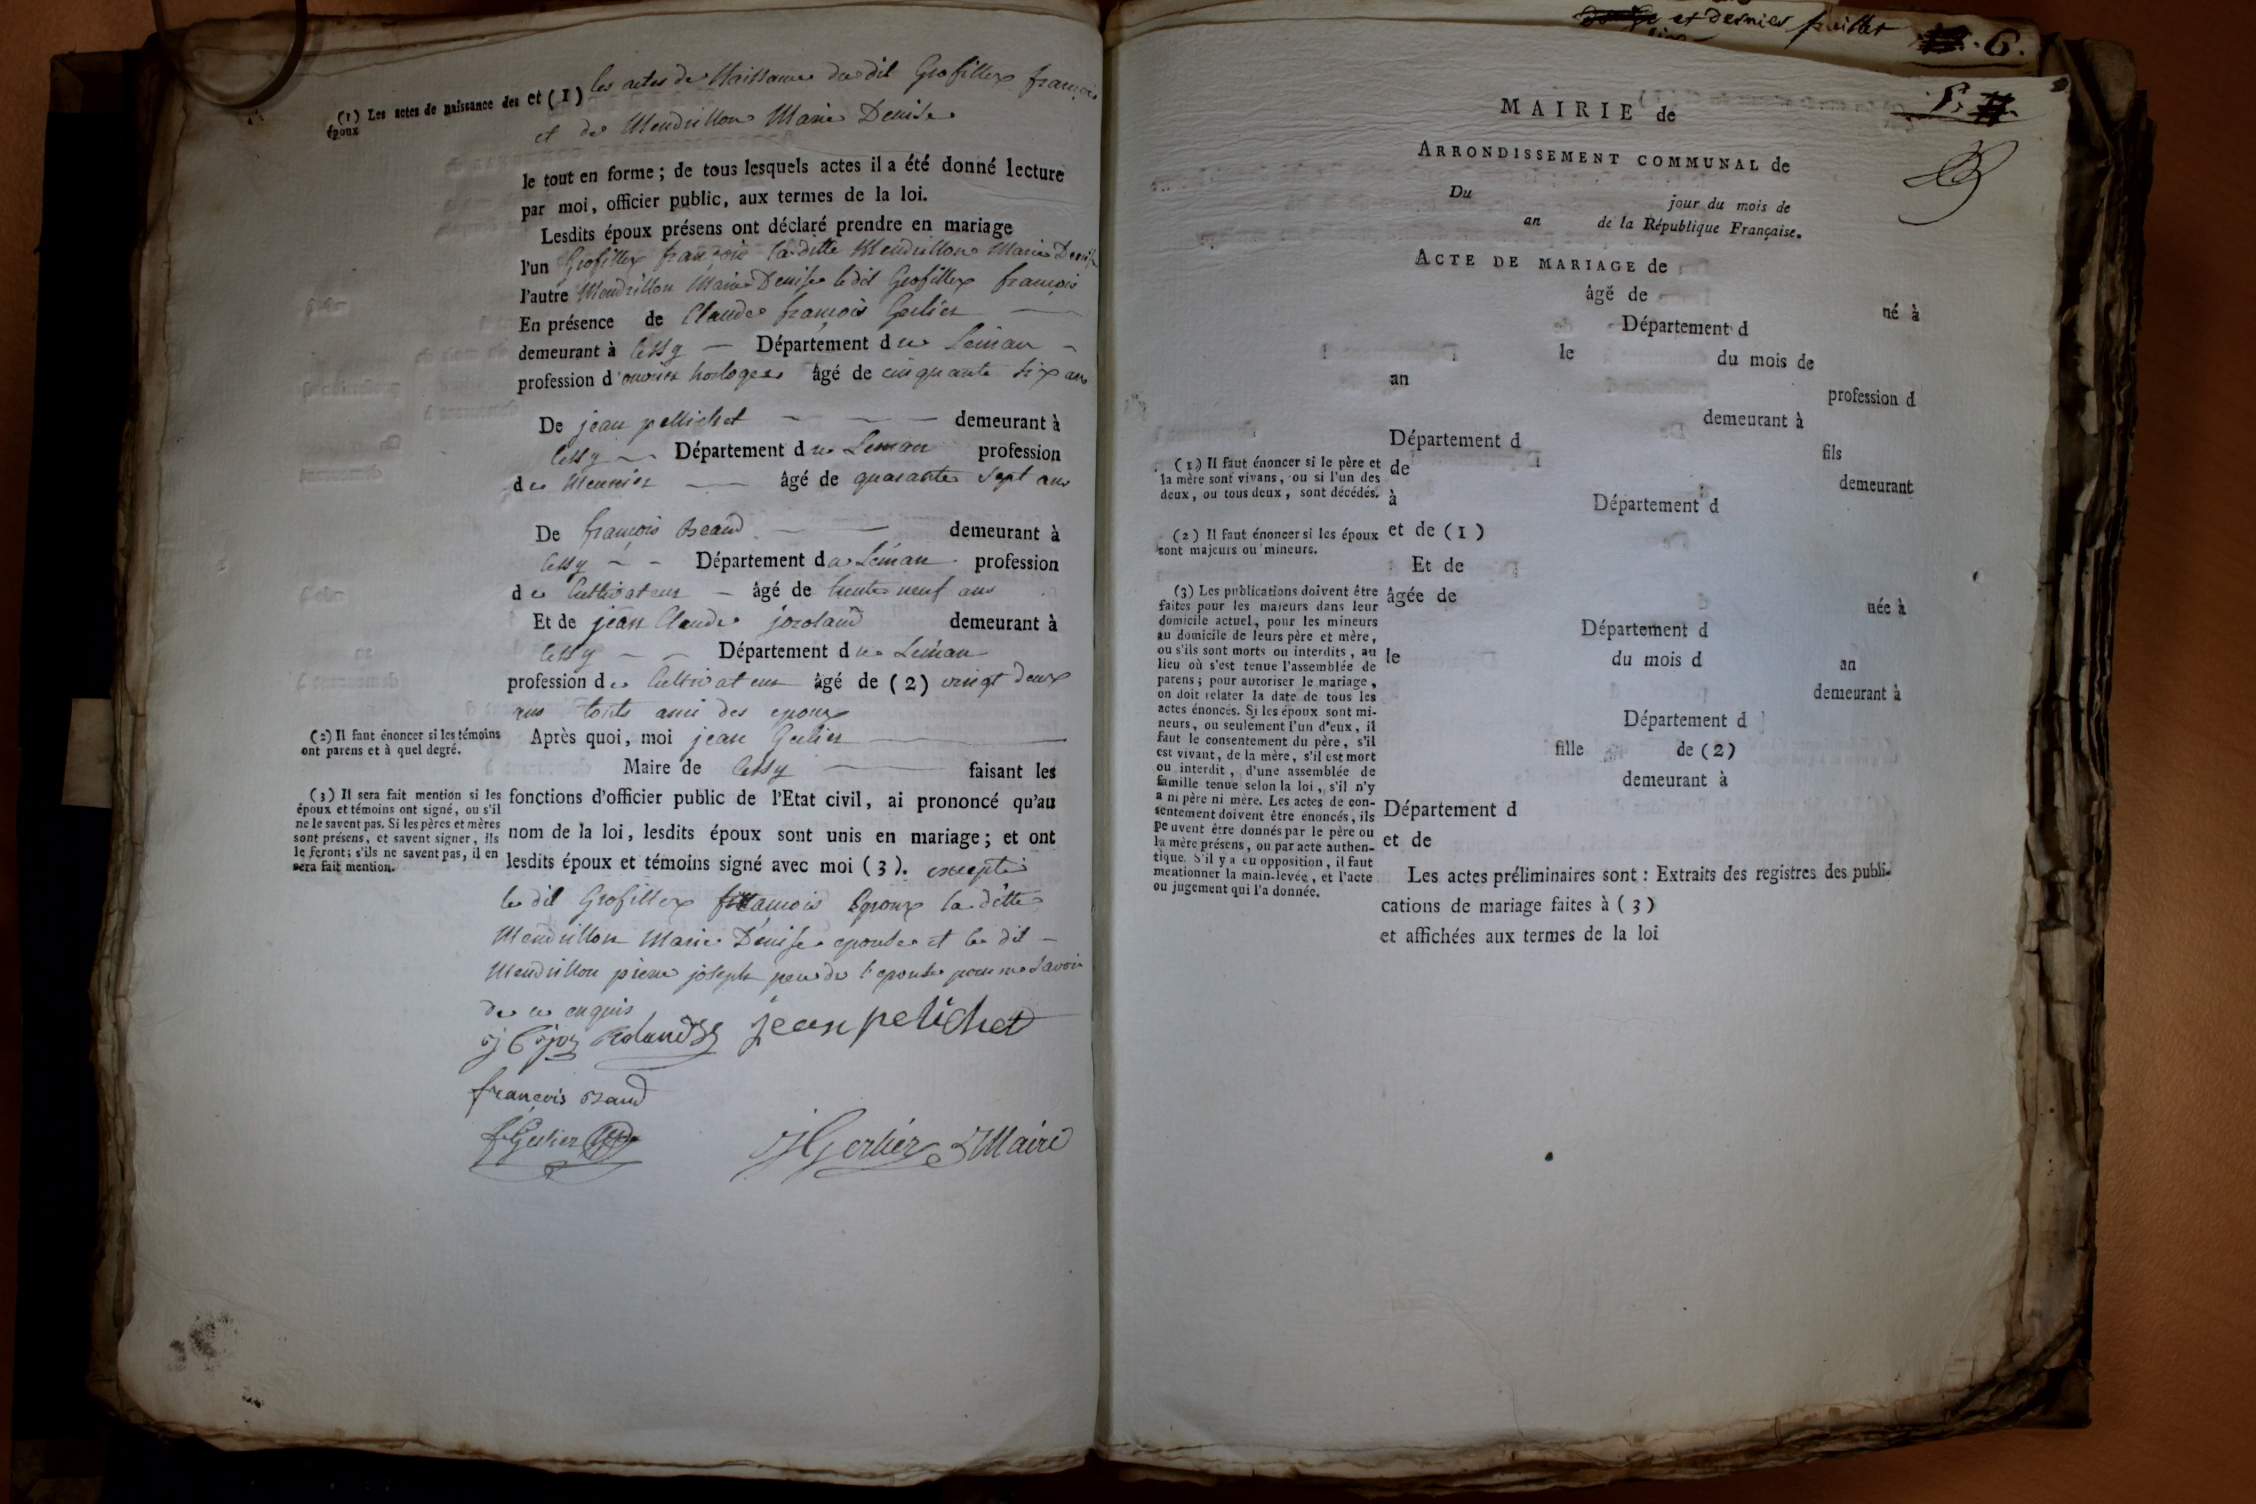 (1) Les actes de naissance des
époux
et (1) les actes de Naissance du dit Grosfillex françois
et de Mendrillon Marie Denise
le tout en forme; de tous lesquels actes il a été donné lecture
par moi, officier public, aux termes de la loi.
Lesdits époux présens ont déclaré prendre en mariage
l'un Grosfillex françois la ditte Mendrillon Marie Denise
l'autre Mendrillon Marie Denise le dit Grosfillex françois
En présence de Claude françois Gerlier
demeurant à Cessy — Département du Leman
profession d'ouvrier horloger âgé de cinquante six ans
De jean pellichet demeurant à
Cessy Département du Leman profession
de Meunier âgé de quarante sept ans
De françois demeurant à
Cessy Département du Léman profession
de Cultivateur — âgé de trente neuf ans
Et de jean Claude jozoland demeurant à
Cessy Département du Léman
profession de Cultivateur âgé de (2) vingt deux
ans touts ami des epoux
(2) Il faut énoncer si les témoins
ont parens et à quel degré.
Après quoi, moi jean Gerlier
Maire de Cessy faisant les
(3) Il sera fait mention si les
époux et témoins ont signé, ou s'il
ne le savent pas. Si les pères et mères
sont présens, et savent signer, ils
le feront; s'ils ne savent pas, il en
sera fait mention.
fonctions d'officier public de l'Etat civil, ai prononcé qu'au
nom de la loi, lesdits époux sont unis en mariage; et ont
lesdits époux et témoins signé avec moi (3). excepté
le dit Grosfillex françois Epoux la ditte
Mendrillon Marie Denise epouse et le dit
Mendrillon pierre joseph pere de l'epouse pour ne savoir
de ce enquis
jean pelichet
françois
Gerlier
Gerlier Maire
et dernier feuillet
6.
MAIRIE de
ARRONDISSEMENT COMMUNAL de
Du jour du mois de
an de la République Française.
ACTE DE MARIAGE de
âgé de né à
Département d
le du mois de
an
profession d
demeurant à
Département d
fils
(1) Il faut énoncer si le père et
la mère sont vivans, ou si l'un des
deux, ou tous deux, sont décédés.
de demeurant
à Département d
(2) Il faut énoncer si les époux
sont majeurs ou mineurs.
et de (1)
Et de
âgée de née à
Département d
le du mois d an
demeurant à
Département d
fille de (2)
demeurant à
Département d
et de
(3) Les publications doivent être
faites pour les majeurs dans leur
domicile actuel, pour les mineurs
au domicile de leurs père et mère,
ou s'ils sont morts ou interdits, au
lieu où s'est tenue l'assemblée de
parens; pour autoriser le mariage,
on doit relater la date de tous les
actes énoncés. Si les époux sont mi-
neurs, ou seulement l'un d'eux, il
faut le consentement du père, s'il
est vivant, de la mère, s'il est mort
ou interdit, d'une assemblée de
famille tenue selon la loi, s'il n'y
a ni père ni mère. Les actes de con-
sentement doivent être énoncés, ils
peuvent être donnés par le père ou
la mère présens, ou par acte authen-
tique. S'il y a eu opposition, il faut
mentionner la main-levée, et l'acte
ou jugement qui l'a donnée.
Les actes préliminaires sont : Extraits des registres des publi-
cations de mariage faites à (3)
et affichées aux termes de la loi